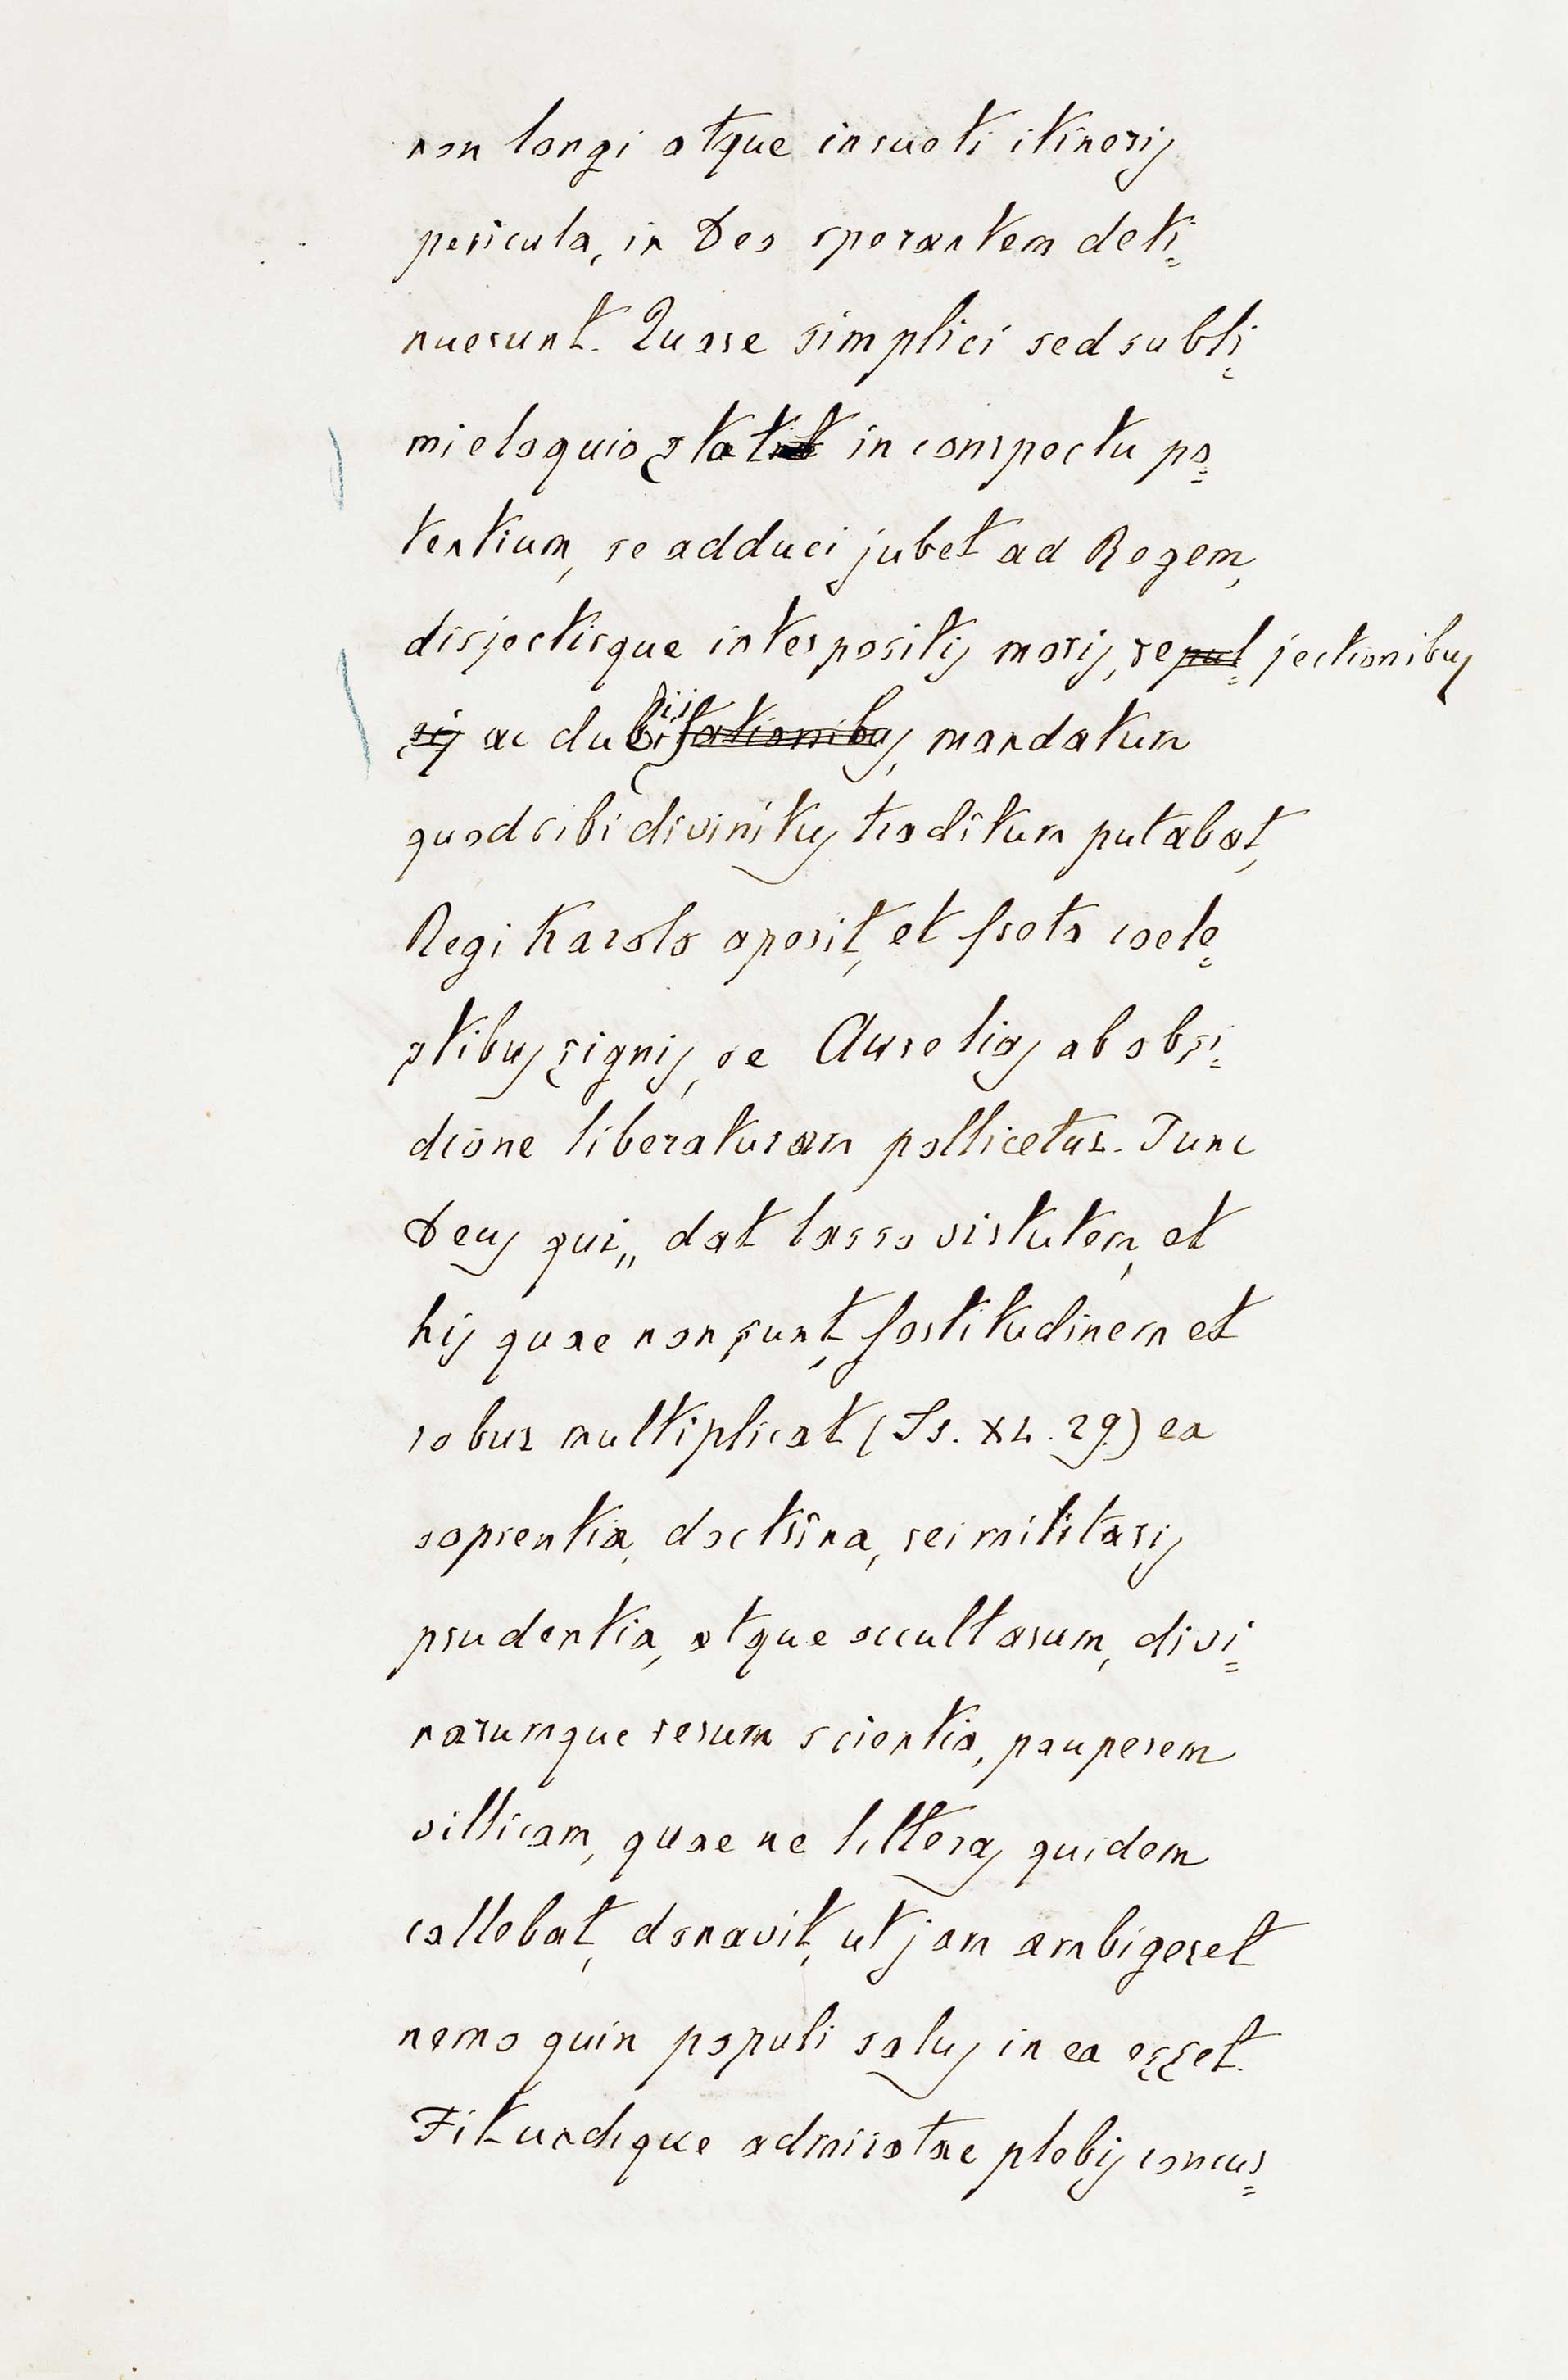 non longi atque insueti itineris
pericula, in Deo sperantem deti=
nuerunt. Quare simplici sed subli=
mi eloquio statit in conspectu po=
tentium, se adduci jubet ad Regem,
disjectisque interpositis moris, repul=jectionibus
sis ac dubiis bitationibus, mandatum
quod sibi divinitus traditum putabat,
Regi Karolo aperit, et freta coele=
stibus signis, se Aurelias ab obsi=
dione liberaturam pollicetur. Tunc
Deus qui,, dat lasso virtutem, et
his quae non sunt, fortitudinem et
robur multiplicat (Is. XL. 29.) ea
sapientia, doctrina, rei militaris
prudentia, atque occultarum, divi=
narumque rerum scientia, pauperem
villicam, quae ne litteras quidem
callebat, donavit, ut jam ambigeret
nemo quin populi salus in ea esset.
Fit undique admiratae plebis concur=